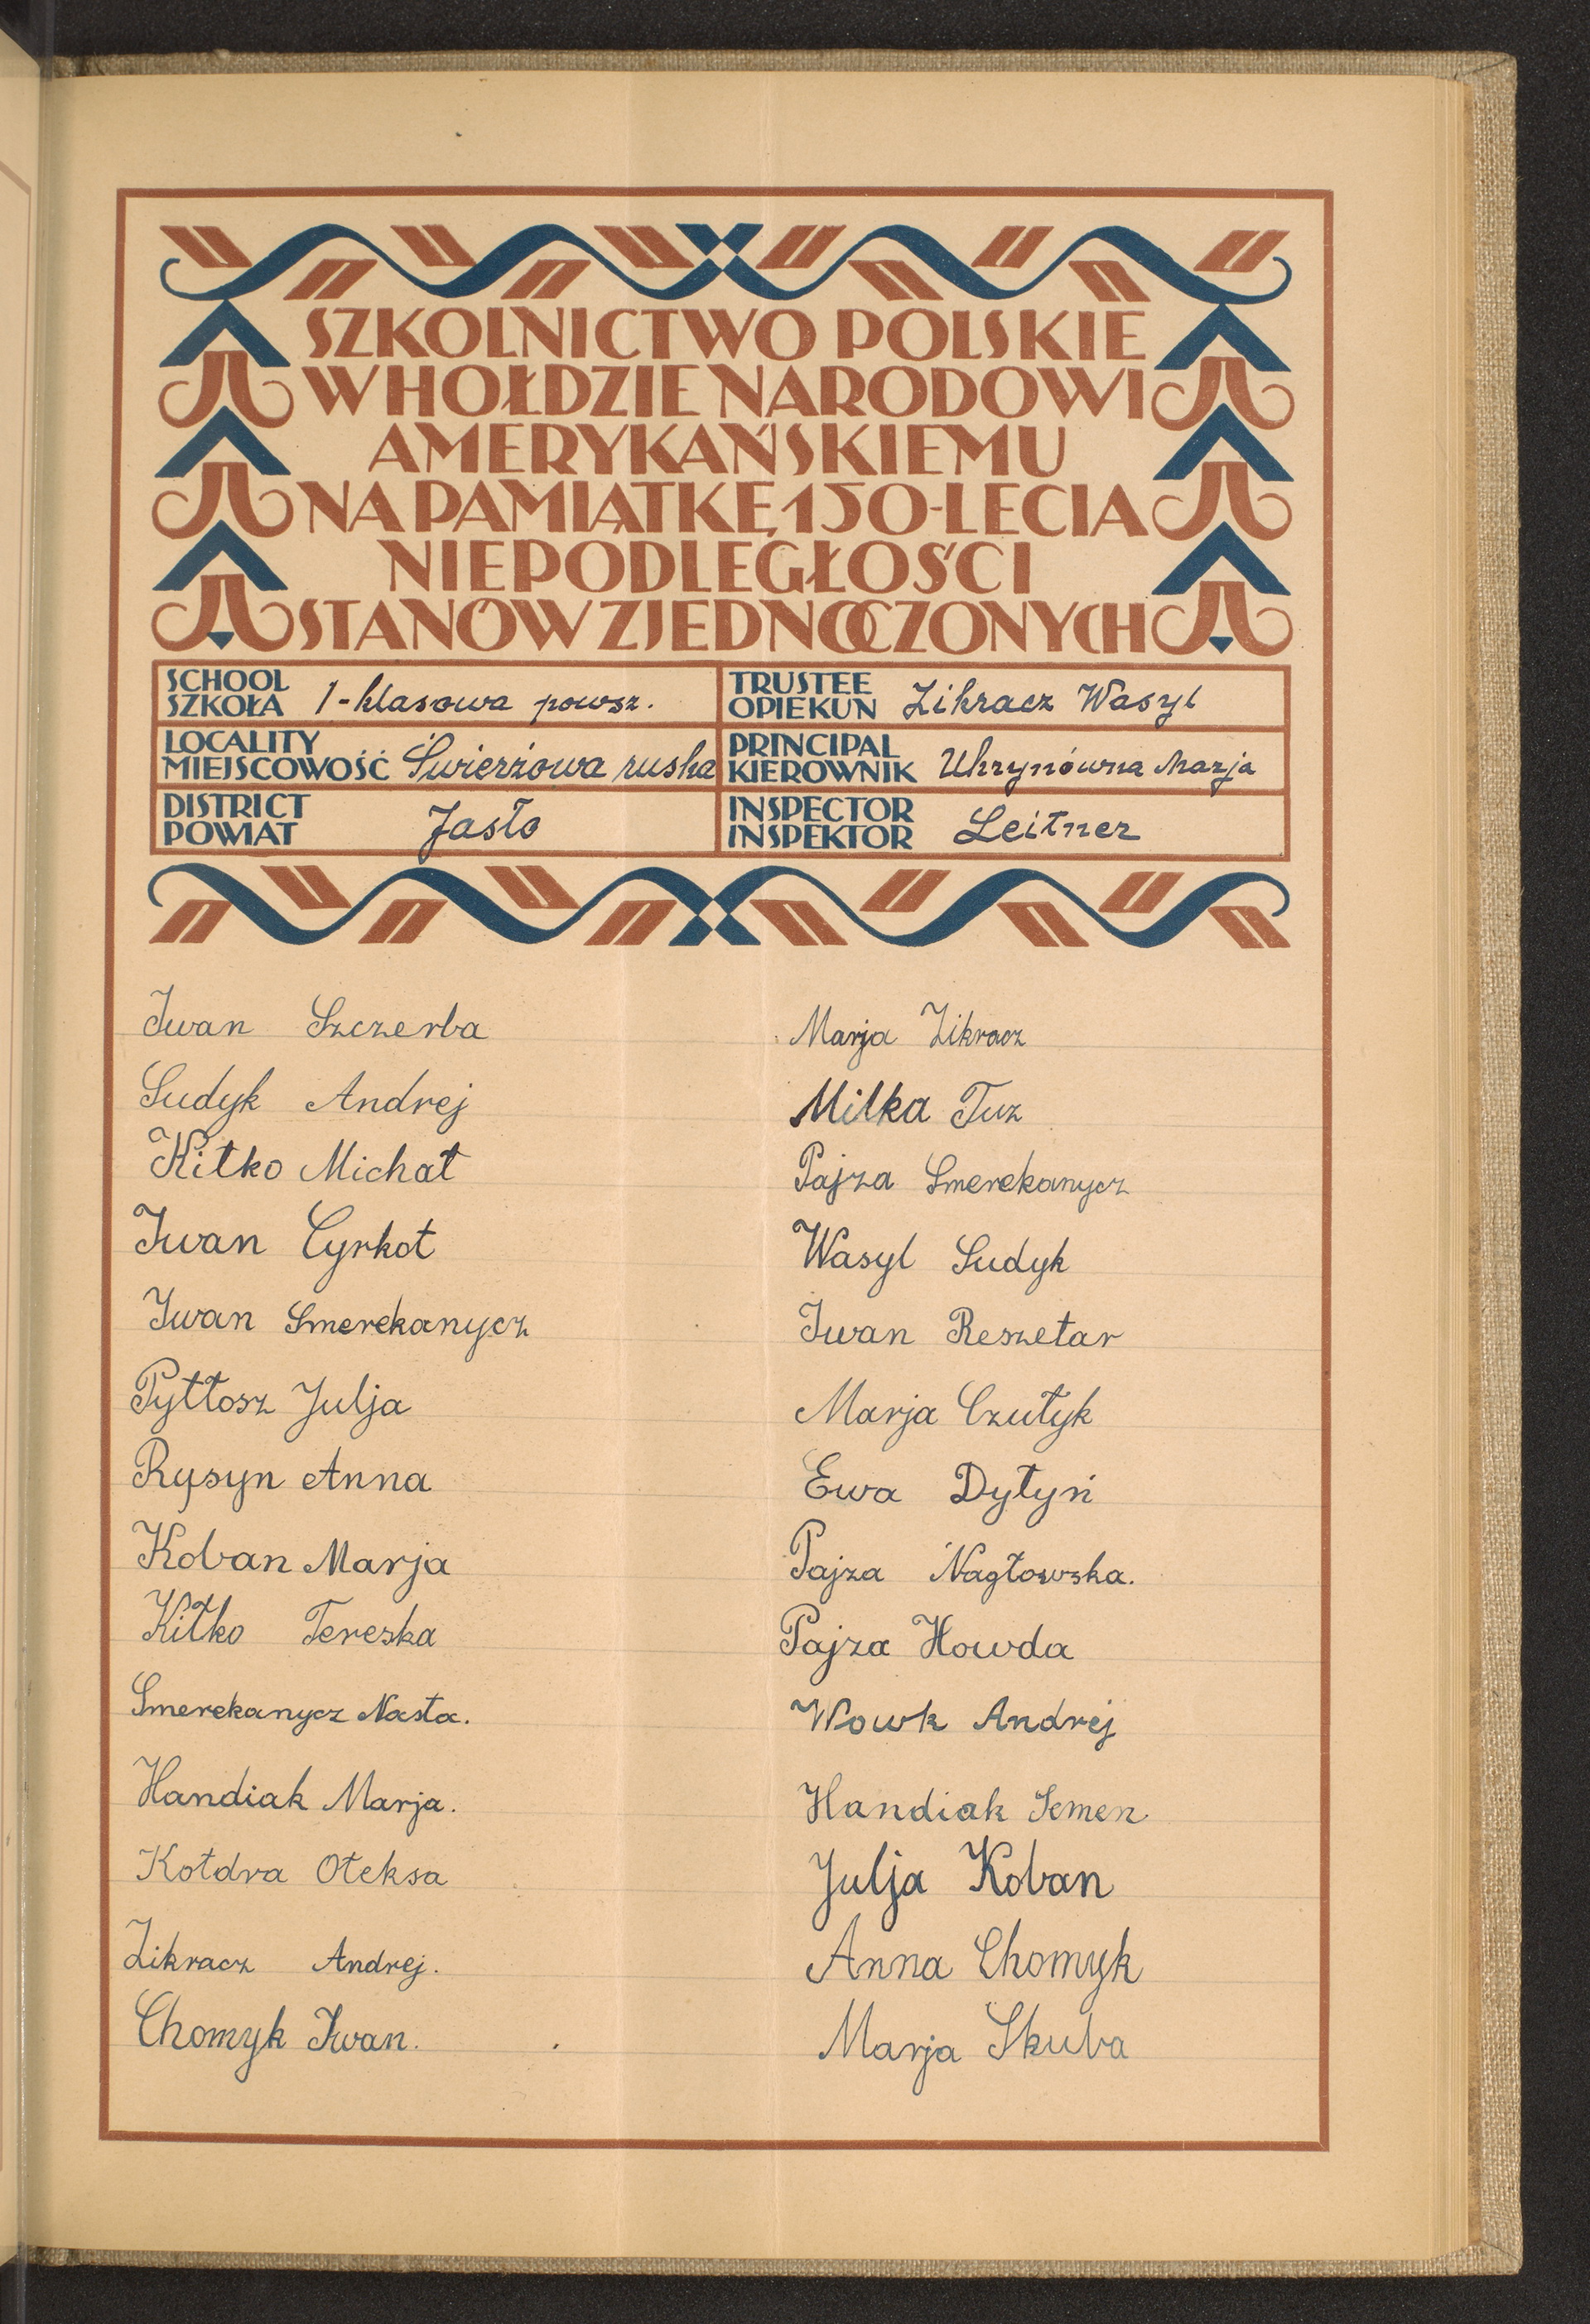 SZKOLNICTWO POLSKIE
W HOŁDZIE NARODOWI
AMERYKAŃSKIEMU
NA PAMIĄTKĘ 150-LECIA
NIEPODLEGŁOŚCI
STANÓW ZJEDNOCZONYCH
SCHOOL
SZKOŁA 1-klasowa powsz.
TRUSTEE
OPIEKUN Zikracz Wasyl
LOCALITY
MIEJSCOWOŚĆ Świerżowa ruska
PRINCIPAL
KIEROWNIK Uhrynówna Marja
DISTRICT
POWIAT Jasło
INSPECTOR
INSPEKTOR Leitner
Iwan Szczerba
Sudyk Andrej
Kitko Michał
Iwan Cyrkot
Iwan Smerekanycz
Pyttosz Julja
Rysyn Anna
Koban Marja
Kitko Tereska
Smerekanycz Nasta.
Handiak Marja.
Kotdra Oteksa
Zikracz Andrej.
Chomyk Iwan.
Marja Zikracz
Milka Tuz
Pajza Smerekanycz
Wasyl Sudyk
Iwan Reszetar
Marja Czutyk
Ewa Dytyń
Pajza Nagłowska.
Pajza Howda
Wowk Andrej
Handiak Semen
Julja Koban
Anna Chomyk
Marja Skuba